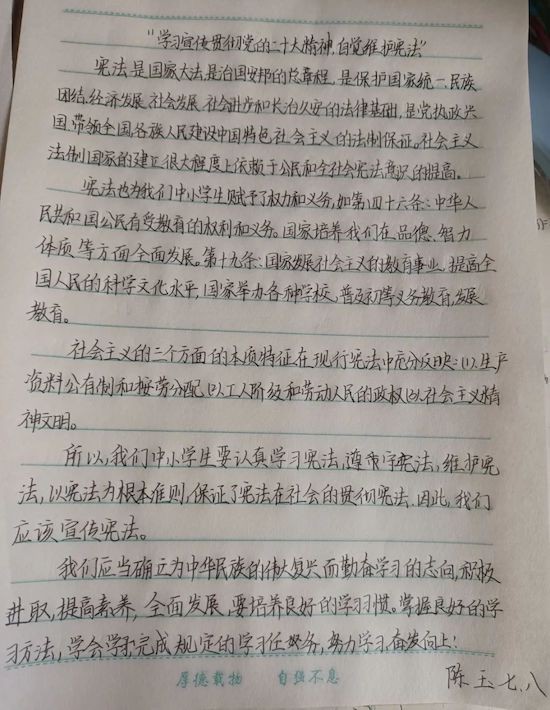 “学习宣传贯彻党的二十大精神,自觉维护宪法”
宪法是国家大法,是治国安邦的总章程,是保护国家统一、民族
团结、经济发展、社会发展、社会进步和长治久安的法律基础,是党执政兴
国、带领全国各族人民建设中国特色社会主义的法制保证。社会主义
法制国家的建立很大程度上依赖于公民和全社会宪法意识的提高。
宪法也为我们中小学生赋予了权力和义务,如第四十六条:中华人
民共和国公民有受教育的权利和义务。国家培养我们在品德、智力
体质等方面全面发展。第十九条:国家发展社会主义的教育事业,提高全
国人民的科学文化水平,国家举办各种学校,普及初等义务教育,发展
教育。
社会主义的三个方面的本质特征在现行宪法中充分反映:(1).生产
资料公有制和按劳分配(2)工人阶级和劳动人民的政权(3)社会主义精
神文明。
所以,我们中小学生要认真学习宪法,遵守宪法,维护宪
法,以宪法为根本准则,保证了宪法在社会的贯彻宪法.因此,我们
应该宣传宪法。
我们应当确立为中华民族的伟大复兴而勤奋学习的志向,积极
进取,提高素养,全面发展,要培养良好的学习习惯。掌握良好的学
习方法,学会学习,完成规定的学习任务,努力学习,奋发向上!
厚德载物 自强不息
陈玉七.八